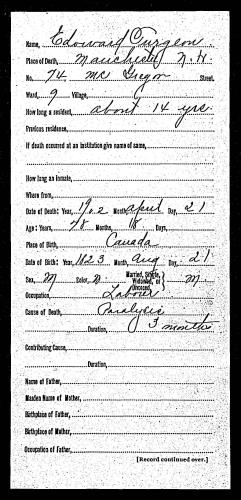 Name, Edouard Turgeon
Place of Death, Manchester N.H.
No. 74 Mc Gregor Street,
Ward, 9 Village,
How long a resident, about 14 yrs.
Previous residence,
If death occurred at an institution give name of same,
How long an inmate,
Where from,
Date of Death: Year, 1902 Month, April Day, 21
Age: Years, 78 Months, Days,
Place of Birth, Canada
Date of Birth: Year, 1823 Month, Aug Day, 21
Sex, M Color, Married, Single, Widowed, or Divorced, M.
Occupation, Laborer
Cause of Death, Paralysis
Duration, 3 months
Contributing Cause,
Duration,
Name of Father,
Maiden Name of Mother,
Birthplace of Father,
Birthplace of Mother,
Occupation of Father,
[Record continued over.]